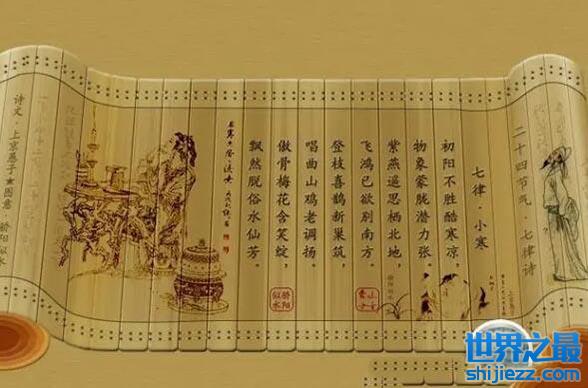 二十四节气·七律诗
七律·小寒
初阳不胜酷寒凉，
物象蒙胧潜力张。
紫燕遥思栖北地，
飞鸿已欲别南方。
登枝喜鹊新巢筑，
唱曲山鸡老调扬。
傲骨梅花含笑绽，
飘然脱俗水仙芳。
骄阳似水
诗文·上京燕子★固意·骄阳似水
世界之最
shijiezz.com